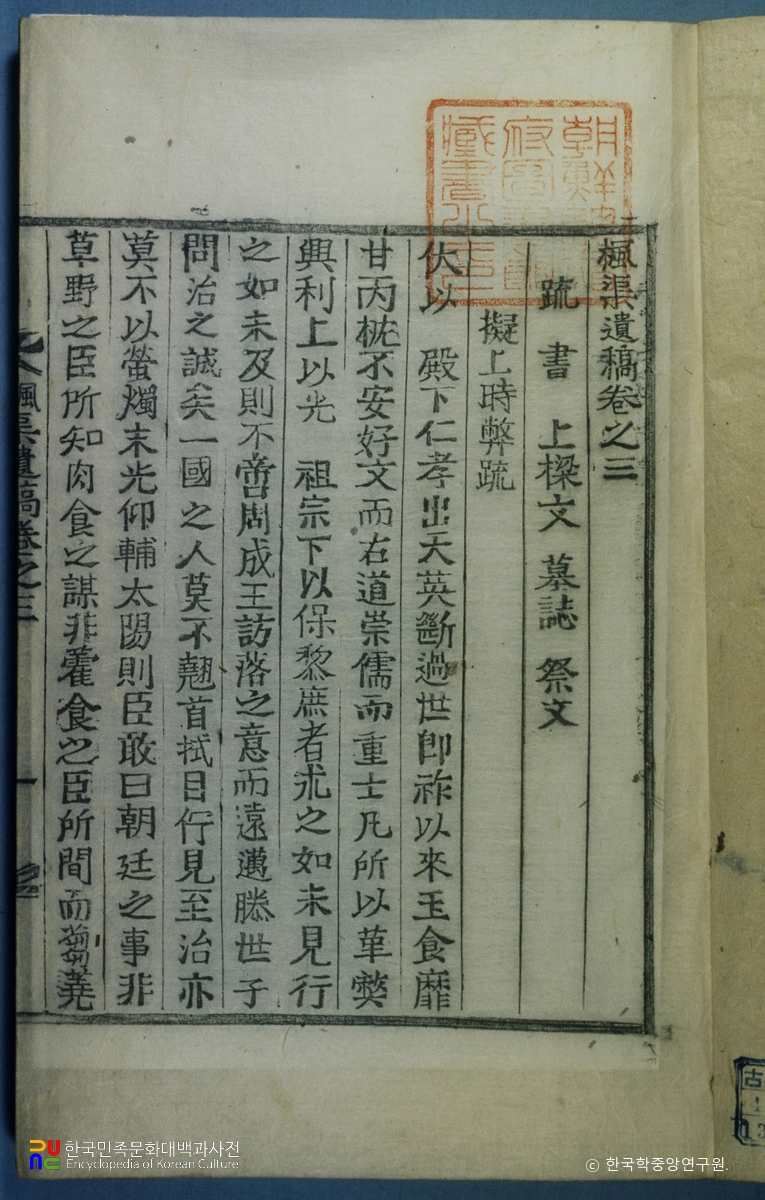 楓渠遺稿卷之三
疏 書 上樑文 墓誌 祭文
擬上時弊疏
伏以 殿下仁孝出天英斷過世卽祚以來玉食靡
甘丙枕不安好文而右道崇儒而重士凡所以革弊
興利上以光 祖宗下以保黎庶者求之如未見行
之如未及則不啻周成王訪落之意而遠邁滕世子
問治之誠矣一國之人莫不翹首拭目佇見至治亦
莫不以螢燭末光仰輔太陽則臣敢曰朝廷之事非
草野之臣所知肉食之謀非藿食之臣所間而蒭蕘
楓渠遺稿卷之三
一
朝鮮總督府圖書館藏書之印
古
한국민족문화대백과사전
Encyclopedia of Korean Culture
ⓒ 한국학중앙연구원.